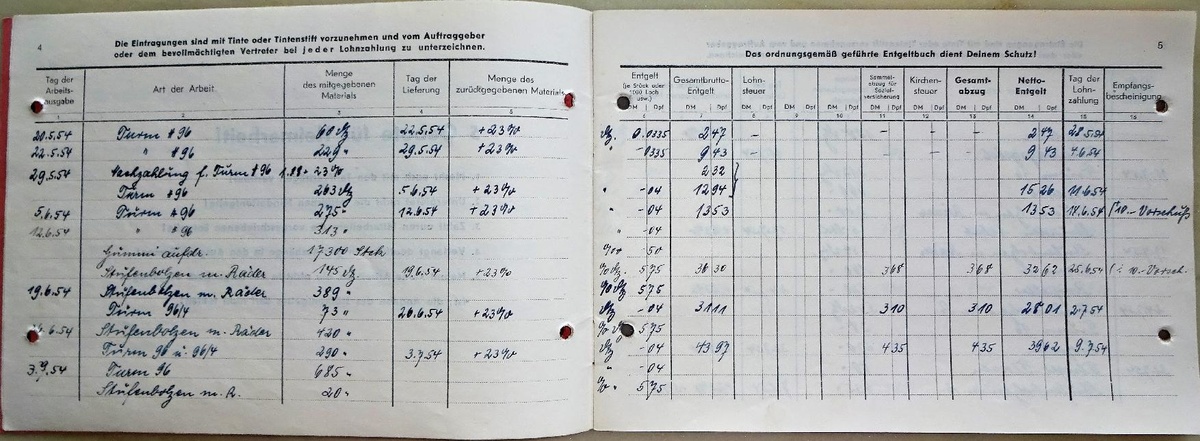 4
Die Eintragungen sind mit Tinte oder Tintenstift vorzunehmen und vom Auftraggeber
oder dem bevollmächtigten Vertreter bei jeder Lohnzahlung zu unterzeichnen.
Tag der Arbeitsausgabe | Art der Arbeit | Menge des mitgegebenen Materials | Tag der Lieferung | Menge des zurückgegebenen Materials
1 2 3 4 5
20.5.54 Turm # 96 60 22.5.54 +23%
22.5.54 " # 96 229 " 29.5.54 +23%
29.5.54 Nachzahlung f. Turm # 96 1.88 23%
Turm # 96 263 5.6.54 +23%
5.6.54 Turm # 96 275 " 12.6.54 +23%
12.6.54 " # 96 313 "
Gummi aufdr. 17300 Stck
Stufenbolzen m. Räder 145 19.6.54 +23%
19.6.54 Stufenbolzen m. Räder 389 "
Turm 96/4 73 " 26.6.54 +23%
6.54 Stufenbolzen m. Räder 420 "
Turm 96 u. 96/4 290 " 3.7.54 +23%
3.7.54 Turm 96 685 "
Stufenbolzen m. R. 20 "
5
Das ordnungsgemäß geführte Entgeltbuch dient Deinem Schutz!
Entgelt (je Stück oder 1000 Loch usw.) | Gesamtbrutto-Entgelt | Lohnsteuer | Sammelabzug für Sozialversicherung | Kirchensteuer | Gesamtabzug | Netto-Entgelt | Tag der Lohnzahlung | Empfangsbescheinigung
DM Dpf DM Dpf DM Dpf DM Dpf DM Dpf DM Dpf DM Dpf DM Dpf DM Dpf
6 7 8 9 10 11 12 13 14 15 16
0.0335 2 47 – – – – 2 47 28.5.54
-0335 9 43 – – – – 9 43 4.6.54
2 32
" -04 12 94 15 26 11.6.54
" -04 13 53 13 53 18.6.54 10.- Vorschuß
" -04
-50
5 75 36 30 3 68 3 68 32 62 25.6.54 10.- Vorsch.
5 75
-04 31 11 3 10 3 10 28 01 2.7.54
5 75
-04 43 97 4 35 4 35 39 62 9.7.54
" -04
5 75